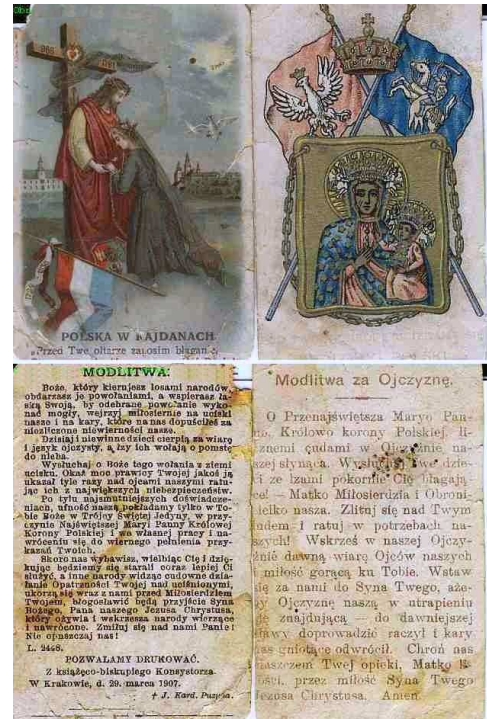 966
1791
POLSKA W KAJDANACH
Przed Twe ołtarze zanosim błagan
MODLITWA:
Boże, który kierujesz losami narodów,
obdarzasz je powołaniami, a wspierasz ła-
ską Swoją, by odebrane powołanie wyko-
nać mogły, wejrzyj miłosiernie na uciski
nasze i na kary, które na nas dopuściłeś za
niezliczone niewierności nasze.
Dzisiaj i niewinne dzieci cierpią za wiarę
i język ojczysty, a łzy ich wołają o pomstę
do nieba.
Wysłuchaj o Boże tego wołania z ziemi
ucisku. Okaż moc prawicy Twojej jakoś ją
ukazał tyle razy nad ojcami naszymi ratu-
jąc ich z największych niebezpieczeństw.
Po tylu najsmutniejszych doświadcze-
niach, ufność naszą pokładamy tylko w To-
bie Boże w Trójcy Świętej Jedyny, w przy-
czynie Najświętszej Maryi Panny Królowej
Korony Polskiej i wa własnej pracy i na-
wróceniu się do wiernego pełnienia przy-
kazań Twoich.
Skoro nas wybawisz, wielbiąc Cię i dzię-
kując będziemy się starali coraz lepiej Ci
służyć, a inne narody widząc cudowne dzia-
łanie Opatrzności Twojej nad uciśnionymi,
ukorzą się wraz z nami przed Miłosierdziem
Twojem, błogosławić będą przyjście Syna
Bożego, Pana naszego Jezusa Chrystusa,
który ożywia i wskrzesza narody wierzące
i nawrócone. Zmiłuj się nad nami Panie!
Nie opuszczaj nas!
L. 2448.
POZWALAMY DRUKOWAĆ.
Z książęco-biskupiego Konsystorza.
W Krakowie, d. 29. marca 1907.
† J. Kard. Puzyna.
Modlitwa za Ojczyznę.
O Przenajświętsza Maryo Pan-
no, Królowo korony Polskiej, li-
cznemi cudami w Ojczyźnie na-
szej słynąca. Wysłuchaj Twe dzie-
ci ze łzami pokornie Cię błagają
ce! — Matko Miłosierdzia i Obroni-
cielko nasza. Zlituj się nad Twym
ludem i ratuj w potrzebach na-
szych! Wskrześ w naszej Ojczy-
źnie dawną wiarę Ojców naszych
i miłość gorącą ku Tobie. Wstaw
się za nami do Syna Twego, aże-
by Ojczyznę naszą w utrapieniu
się znajdującą do dawniejszej
sławy doprowadzić raczył i kary
nas gniotące odwrócił. Chroń nas
płaszczem Twej opieki, Matko B-
ości, przez miłość Syna Twego
Jezusa Chrystusa. Amen.